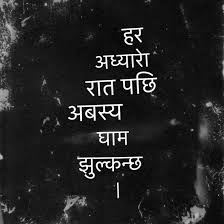 हर
अध्यारो
रात पछि
अबस्य
घाम
झुल्कन्छ
।